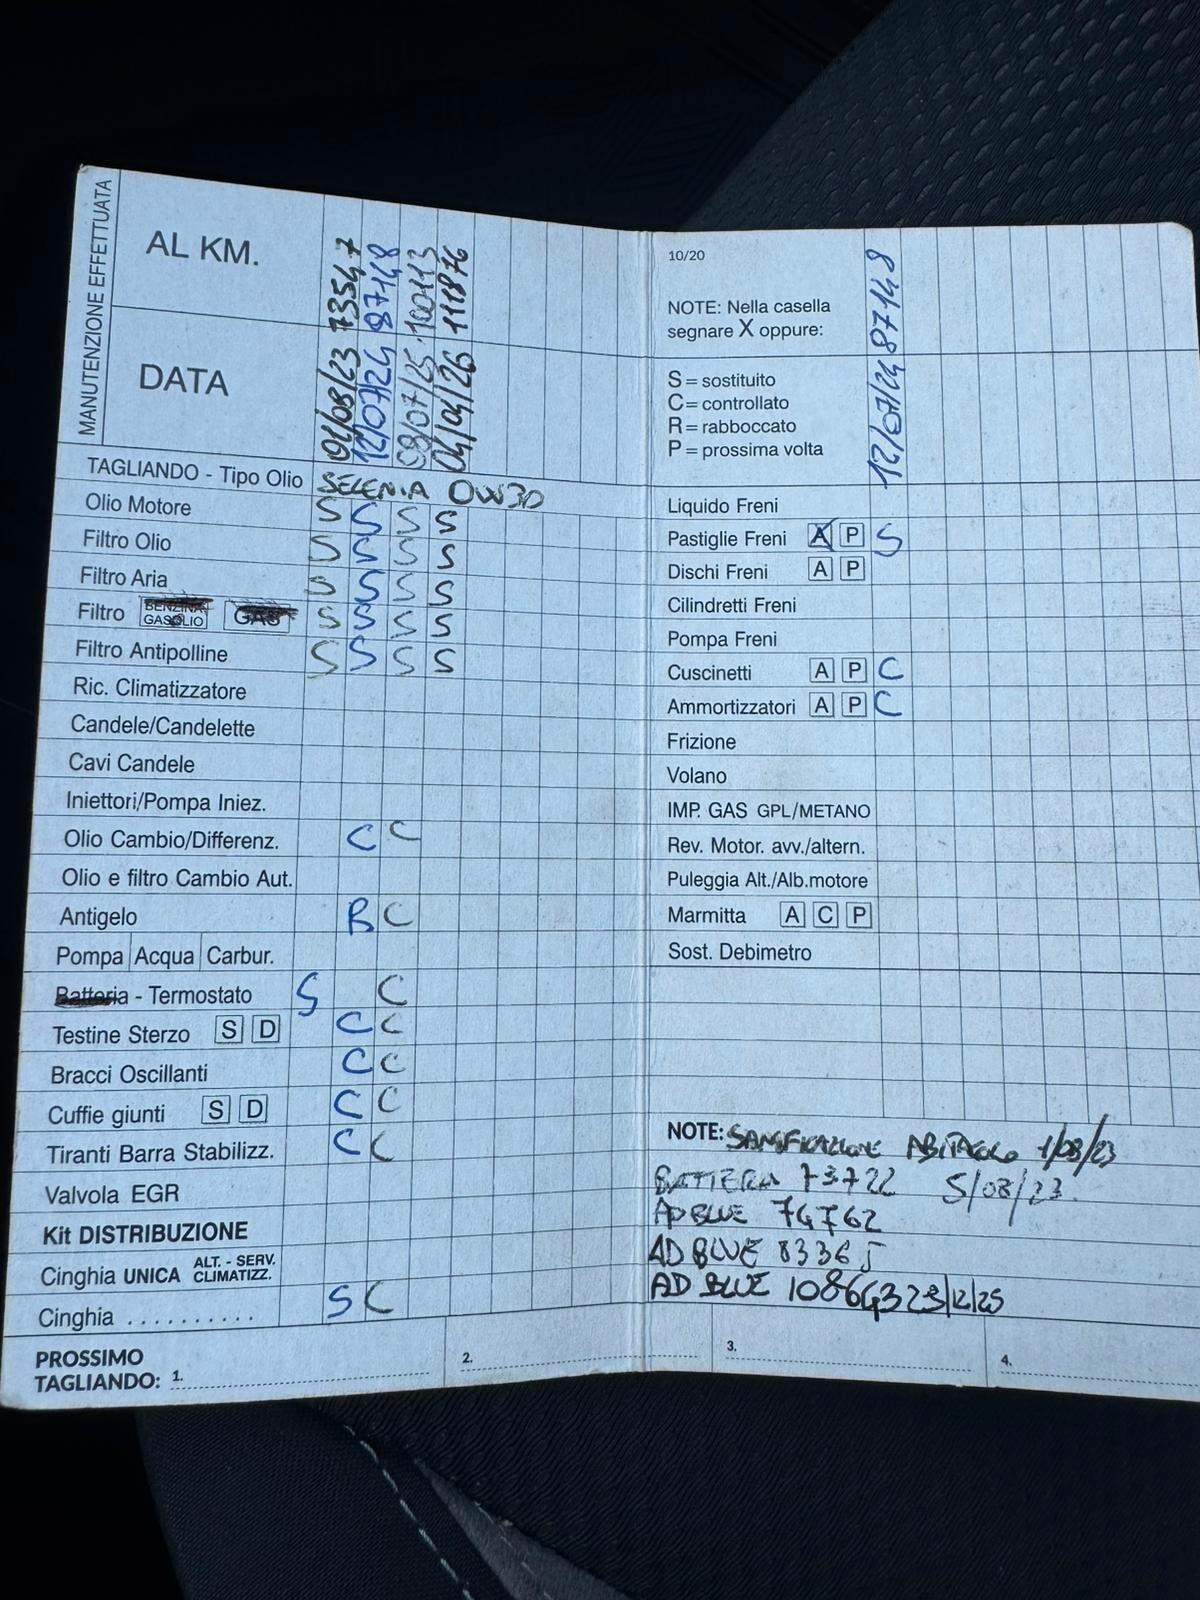 MANUTENZIONE EFFETTUATA
AL KM. 73547 87148 100113 111876
DATA 01/08/23 12/07/24 08/07/25 04/04/26
TAGLIANDO - Tipo Olio SELENIA 0W30
Olio Motore S S S S
Filtro Olio S S S S
Filtro Aria S S S S
Filtro BENZINA GASOLIO GAS S S S S
Filtro Antipolline S S S S
Ric. Climatizzatore
Candele/Candelette
Cavi Candele
Iniettori/Pompa Iniez.
Olio Cambio/Differenz. C C
Olio e filtro Cambio Aut.
Antigelo R C
Pompa Acqua Carbur.
Batteria - Termostato S C
Testine Sterzo S D C C
Bracci Oscillanti C C
Cuffie giunti S D C C
Tiranti Barra Stabilizz. C C
Valvola EGR
Kit DISTRIBUZIONE
Cinghia UNICA ALT. - SERV. CLIMATIZZ.
Cinghia .......... S C
PROSSIMO
TAGLIANDO: 1. 2. 3. 4.
10/20
NOTE: Nella casella
segnare X oppure:
87148
S = sostituito
C = controllato
R = rabboccato
P = prossima volta
12/07/24
Liquido Freni
Pastiglie Freni A P S
Dischi Freni A P
Cilindretti Freni
Pompa Freni
Cuscinetti A P C
Ammortizzatori A P C
Frizione
Volano
IMP. GAS GPL/METANO
Rev. Motor. avv./altern.
Puleggia Alt./Alb.motore
Marmitta A C P
Sost. Debimetro
NOTE: SANIFICAZIONE ABITACOLO 1/08/23
BATTERIA 73722 5/08/23
AD BLUE 74762
AD BLUE 83365
AD BLUE 108643 23/12/25